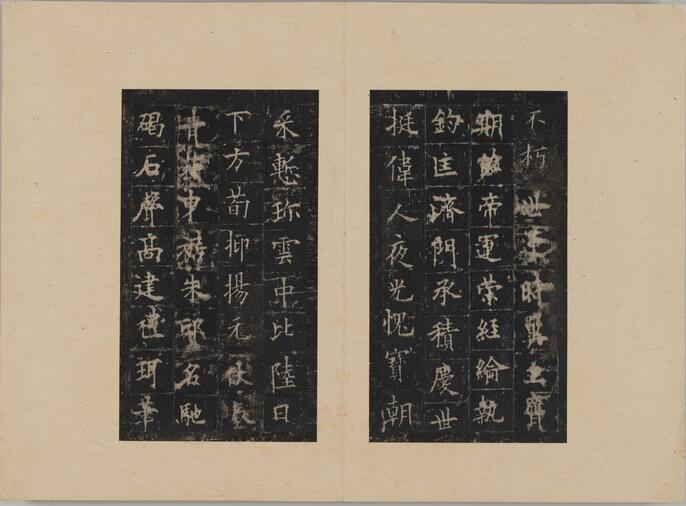 不朽世時之
期帝運榮經綸執
鈞匡濟門承積慶世
挺偉人夜光愧寶朝
采慙珎雲中比陸日
下方荀抑揚元長
東朱邸名馳
碣石聲高建禮珂華